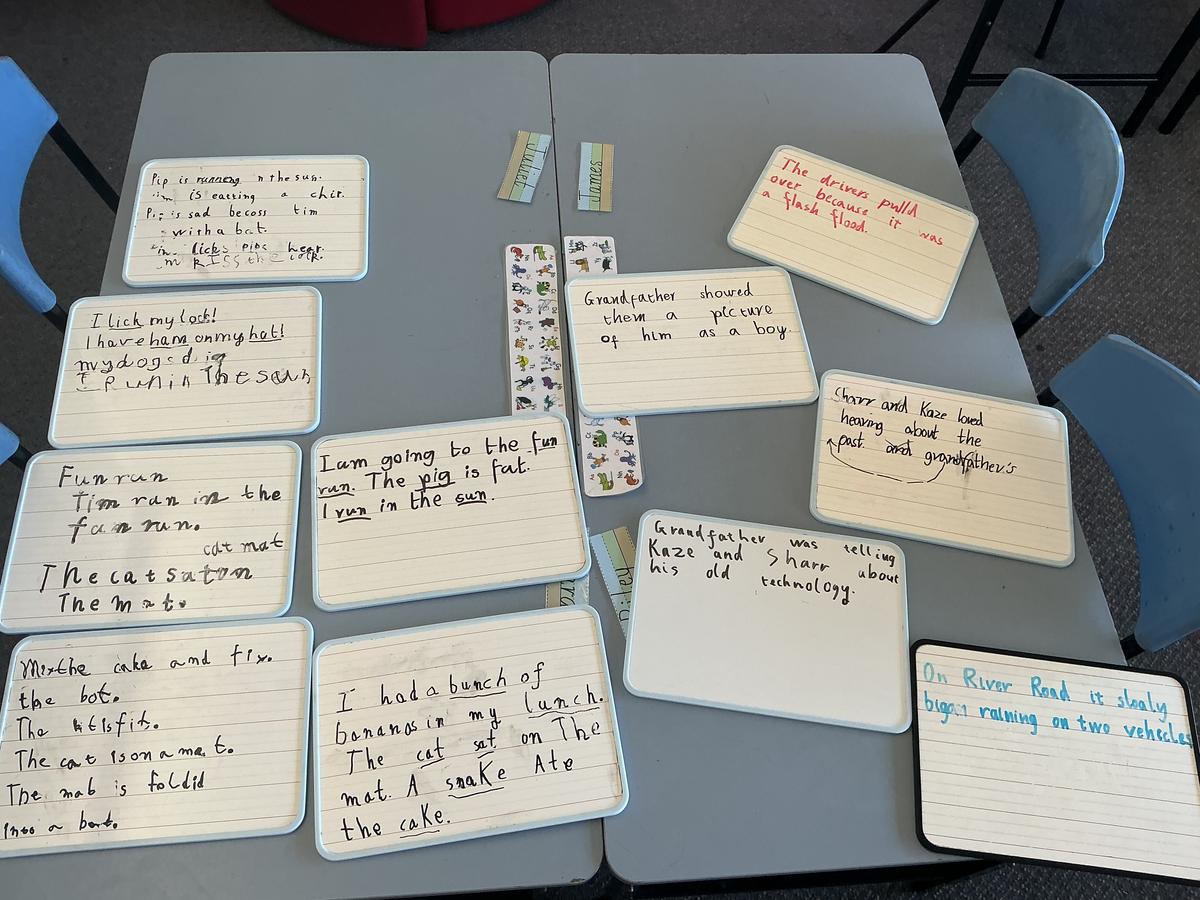 Pip is running n the sun.
im is eatting a chir.
is sad becoss tim
with a bat.
licks pips hear.
I lick my lock!
I have ham on my hat!
my dogs dig
I run in The sun
Fun run
Tim ran in the
fan run.
cat mat
The cat sat on
The mat.
Mix the cake and fix.
the bot.
The fit.
The cat is on a mat.
The mab is foldid
into a bot.
I am going to the fun
run. The pig is fat.
I run in the sun.
I had a bunch of
bananas in my lunch.
The cat sat on The
mat. A snake Ate
the cake.
Juliet
James
Riley
The drivers pulld
over because it was
a flash flood.
Grandfather showed
them a picture
of him as a boy.
Sharr and Kaze loved
hearing about the
past and grandfather's
Grandfather was telling
Kaze and Sharr about
his old technology.
On River Road it sloaly
bigan raining on two vehecles